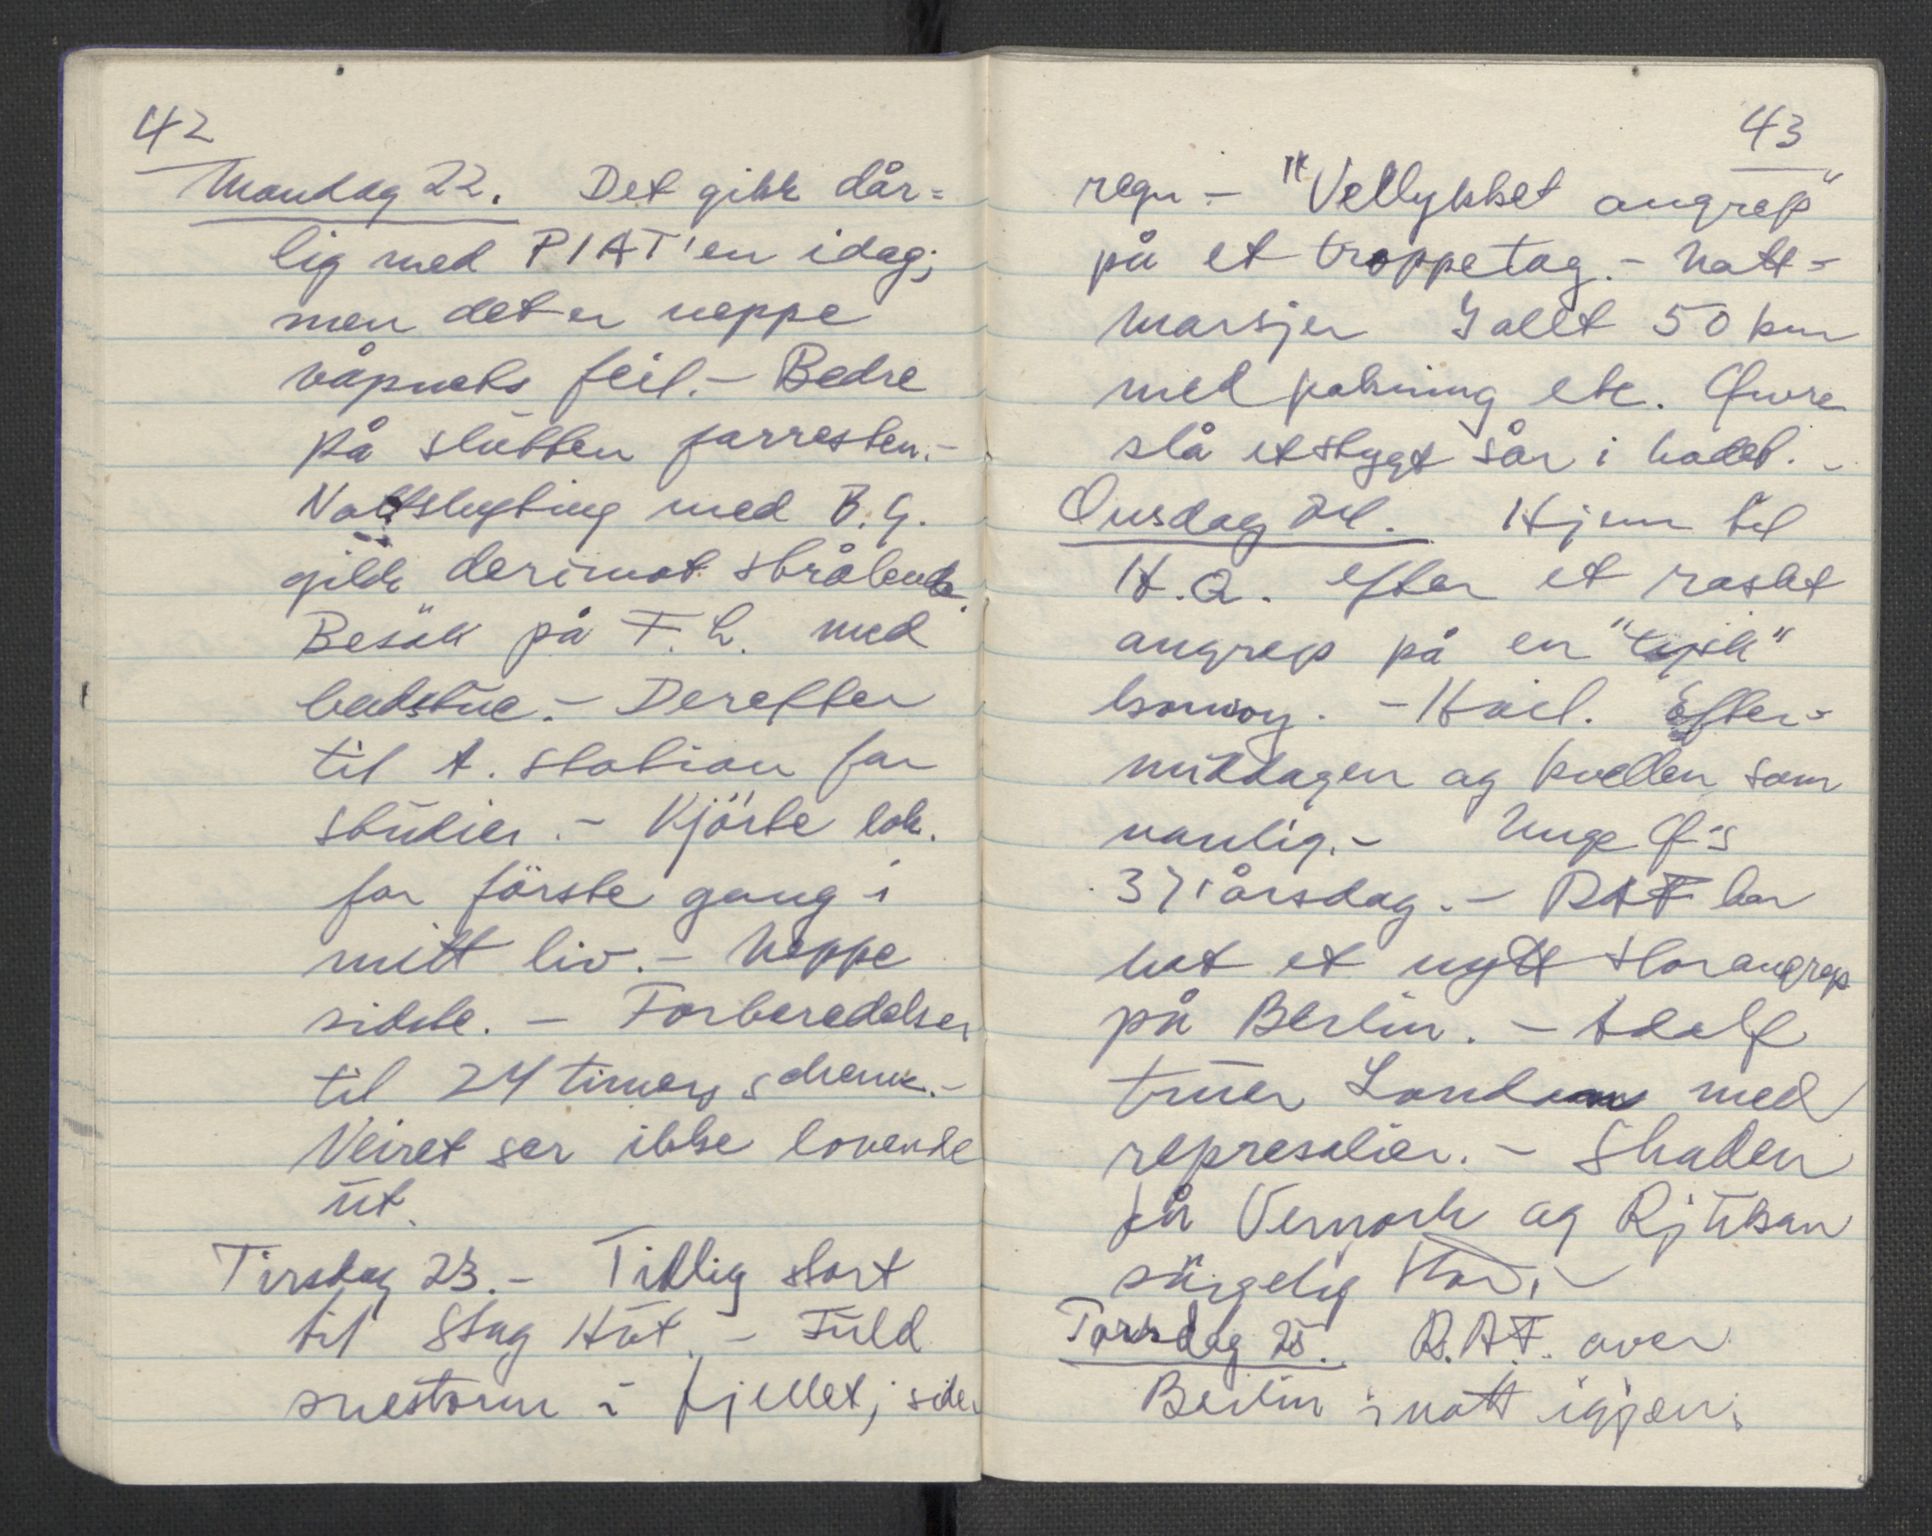 42
Mandag 22. Det gikk dår-
lig med PIAT'en idag;
men det er neppe
våpnets feil. - Bedre
på slutten forresten. -
Nattskyting med B.G.
gikk derimot strålende.
Besök på F.L. med
badstue. - Derefter
til A. station for
studier. - Kjörte lok.
for förste gang i
mitt liv. - Neppe
sidste. - Forberedelser
til 24 timers scheme. -
Veiret ser ikke lovende
ut.
Tirsdag 23. - Tidlig start
til Stag Hut. - Fuld
snestorm i fjellet; siden
43
regn - "Vellykket angrep"
på et troppetog. - Natt-
marsjer Iallt 50 km
med pakning etc.
slå et stygt sår i hodet. -
Onsdag 24. Hjem til
H.Q. efter et raskt
angrep på en "tysk"
konvoy. - Hvil. Efter-
middagen og kvellen som
vanlig. - Unge O's
37'årsdag. - RAF har
hat et nytt storangrep
på Berlin. - Adolf
truer London med
represalier. - Skaden
på Vemork og Rjukan
sörgelig stor. -
Torsdag 25. R.A.F. over
Berlin i natt igjen.